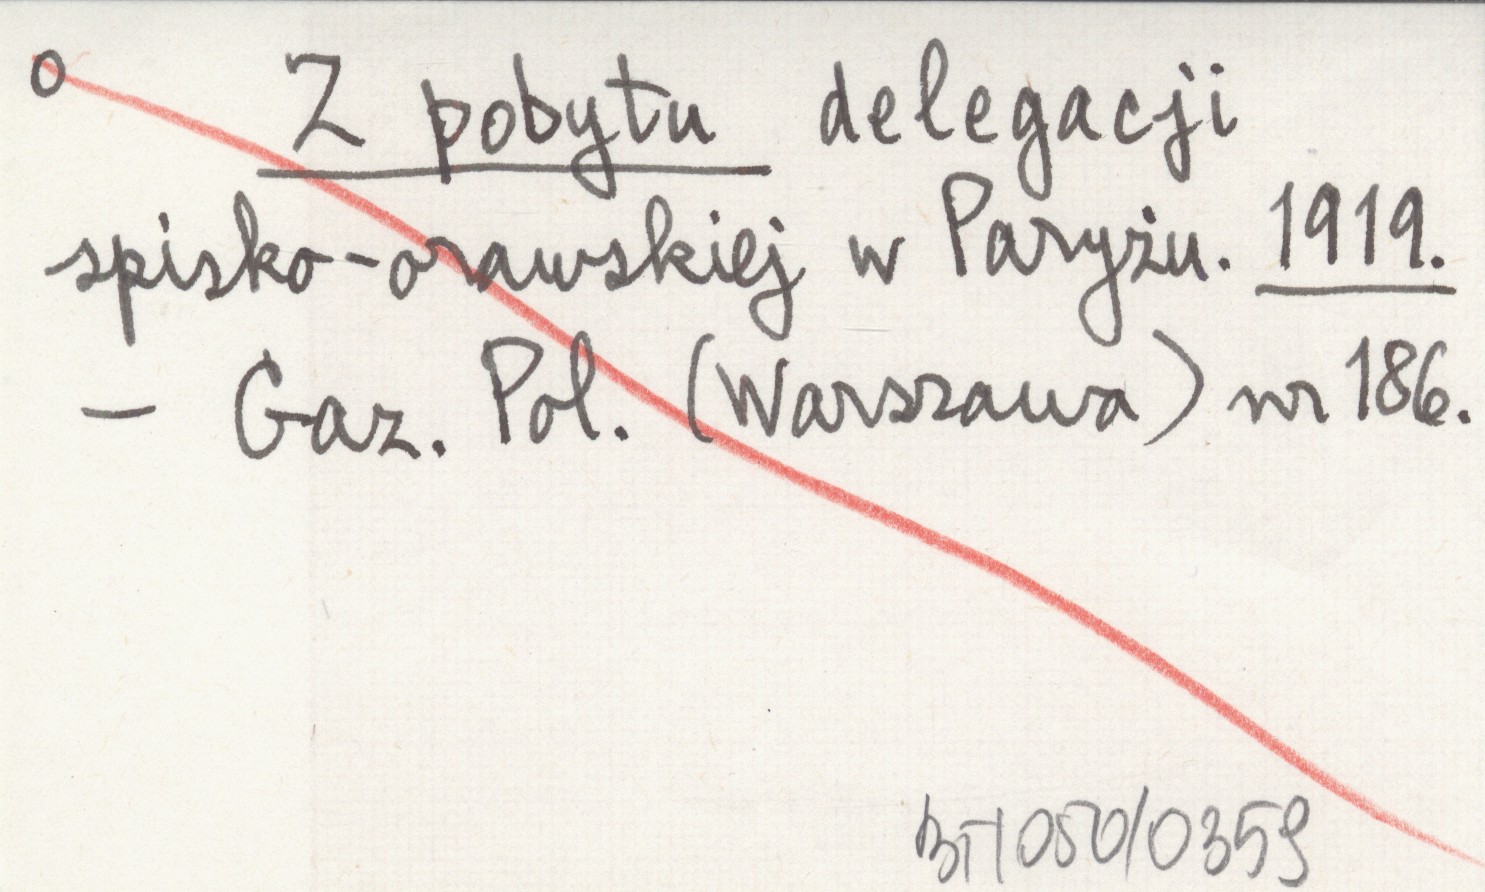 o Z pobytu delegacji
spisko-orawskiej w Paryżu. 1919.
— Gaz. Pol. (Warszawa) nr 186.
BT/050/0359